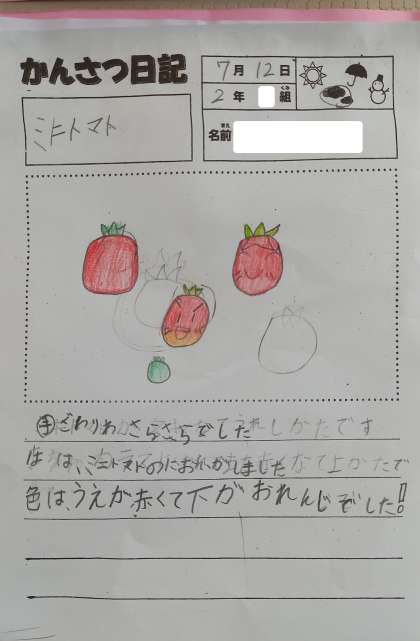 かんさつ日記
7月12日
2年 組
くみ
名前
なまえ
ミニトマト
手ざわりわさらさらでした
は は、ミニトマトのにおいがしました
色は、うえが赤くて下がおれんじぞした!!